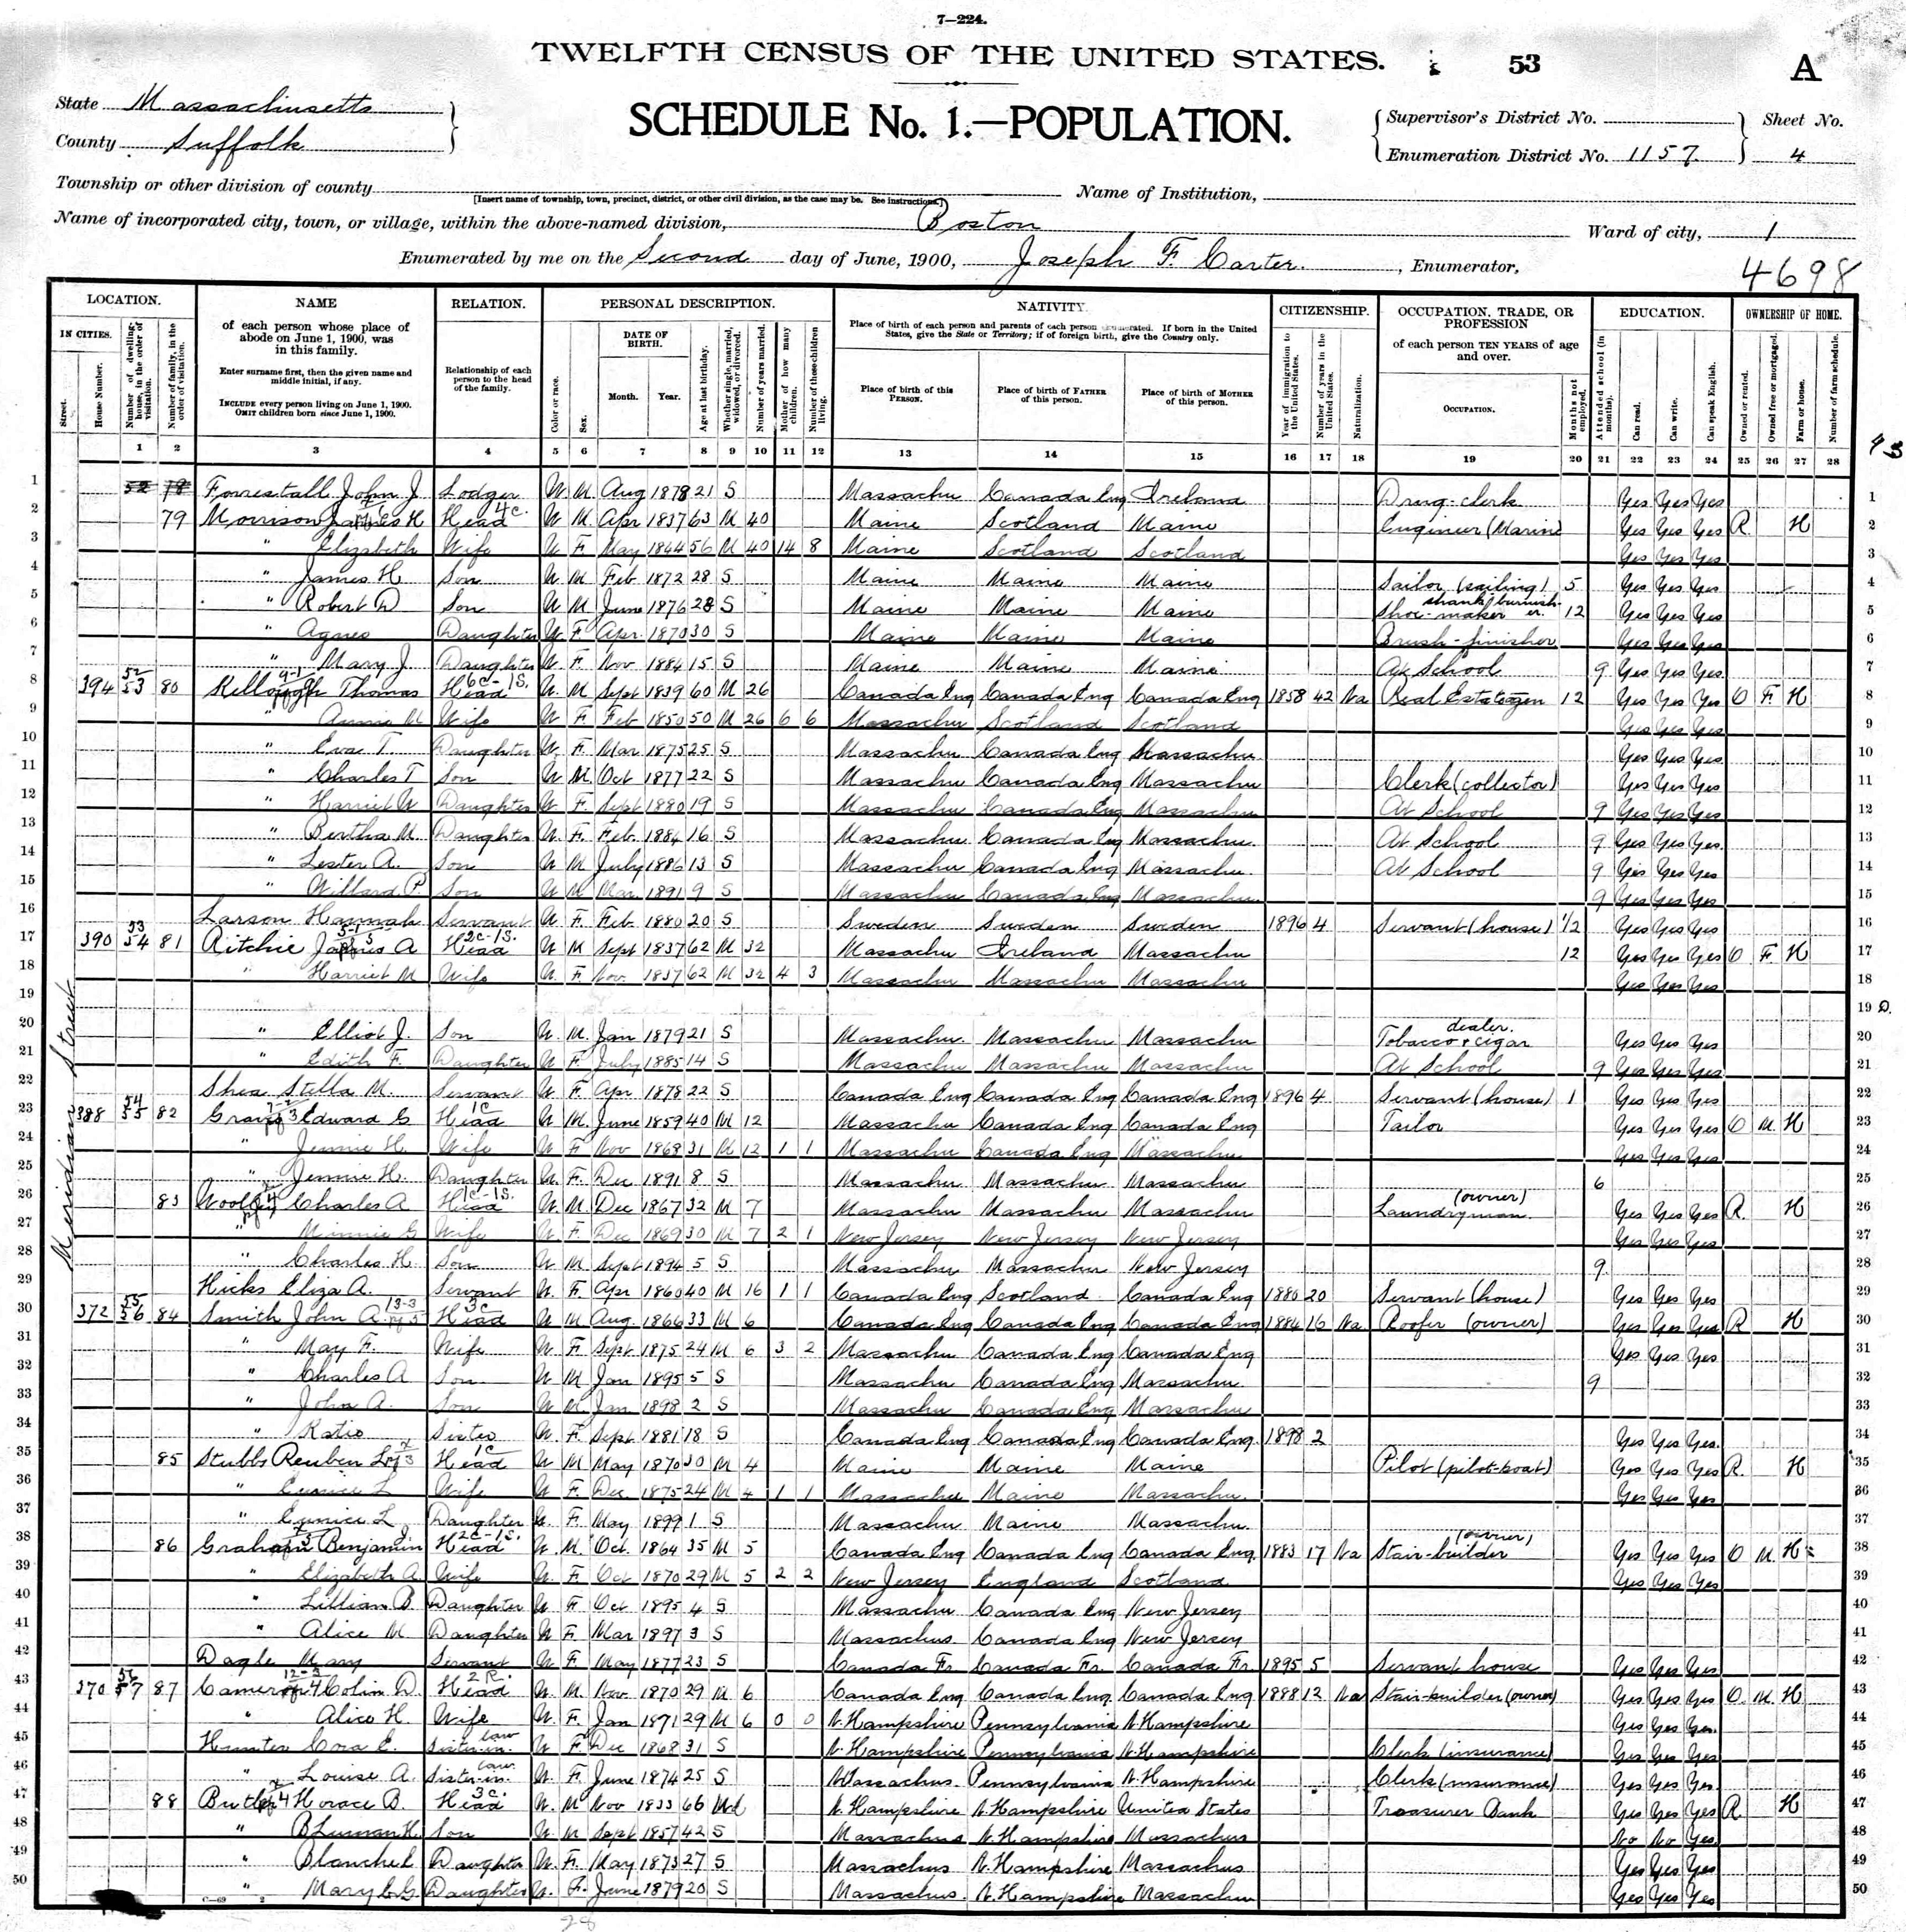 7—224.
TWELFTH CENSUS OF THE UNITED STATES.
53
A
State Massachusetts
County Suffolk
SCHEDULE No. 1.—POPULATION.
Supervisor's District No.
Enumeration District No. 1157
Sheet No.
4
Township or other division of county
[Insert name of township, town, precinct, district, or other civil division, as the case may be. See instructions.]
Name of Institution,
Name of incorporated city, town, or village, within the above-named division, Boston
Ward of city, 1
Enumerated by me on the Second day of June, 1900, Joseph F. Carter, Enumerator,
4698
LOCATION. NAME RELATION. PERSONAL DESCRIPTION. NATIVITY. CITIZENSHIP. OCCUPATION, TRADE, OR PROFESSION EDUCATION. OWNERSHIP OF HOME.
IN CITIES.
Street.
House Number.
Number of dwelling-house, in the order of visitation.
Number of family, in the order of visitation.
of each person whose place of abode on June 1, 1900, was in this family.
Enter surname first, then the given name and middle initial, if any.
INCLUDE every person living on June 1, 1900. OMIT children born since June 1, 1900.
Relationship of each person to the head of the family.
Color or race.
Sex.
DATE OF BIRTH.
Month. Year.
Age at last birthday.
Whether single, married, widowed, or divorced.
Number of years married.
Mother of how many children.
Number of these children living.
Place of birth of each person and parents of each person enumerated. If born in the United States, give the State or Territory; if of foreign birth, give the Country only.
Place of birth of this PERSON.
Place of birth of FATHER of this person.
Place of birth of MOTHER of this person.
Year of immigration to the United States.
Number of years in the United States.
Naturalization.
of each person TEN YEARS of age and over.
OCCUPATION.
Months not employed.
Attended school (in months).
Can read.
Can write.
Can speak English.
Owned or rented.
Owned free or mortgaged.
Farm or house.
Number of farm schedule.
1 2 3 4 5 6 7 8 9 10 11 12 13 14 15 16 17 18 19 20 21 22 23 24 25 26 27 28
Meridian Street
1 52 78 Forrestall John J. Lodger W M Aug 1878 21 S Massachu Canada Eng Ireland Drug-clerk Yes Yes Yes 1
2 79 Morrison James H Head W M Apr 1837 63 M 40 Maine Scotland Maine Engineer (Marine Yes Yes Yes R H 2
3 " Elizabeth Wife W F May 1844 56 M 40 14 8 Maine Scotland Scotland Yes Yes Yes 3
4 " James H Son W M Feb 1872 28 S Maine Maine Maine Sailor (sailing) 5 Yes Yes Yes 4
5 " Robert D Son W M June 1876 28 S Maine Maine Maine Shoe-maker shank burnisher 12 Yes Yes Yes 5
6 " Agnes Daughter W F Apr 1870 30 S Maine Maine Maine Brush-finisher Yes Yes Yes 6
7 " Mary J. Daughter W F Nov 1884 15 S Maine Maine Maine At School 9 Yes Yes Yes 7
8 394 53 80 Kellough Thomas Head W M Sept 1839 60 M 26 Canada Eng Canada Eng Canada Eng 1858 42 Na Real Estate agen 12 Yes Yes Yes O F H 8
9 " Annie M Wife W F Feb 1850 50 M 26 6 6 Massachu Scotland Scotland Yes Yes Yes 9
10 " Eva T. Daughter W F Mar 1875 25 S Massachu Canada Eng Massachu Yes Yes Yes 10
11 " Charles T Son W M Oct 1877 22 S Massachu Canada Eng Massachu Clerk (collector) Yes Yes Yes 11
12 " Harriet W Daughter W F Sept 1880 19 S Massachu Canada Eng Massachu At School 9 Yes Yes Yes 12
13 " Bertha M. Daughter W F Feb. 1884 16 S Massachu Canada Eng Massachu At School 9 Yes Yes Yes 13
14 " Lester A. Son W M July 1886 13 S Massachu Canada Eng Massachu At School 9 Yes Yes Yes 14
15 " Willard P. Son W M Mar 1891 9 S Massachu Canada Eng Massachu 9 Yes Yes Yes 15
16 Larson Hannah Servant W F Feb 1880 20 S Sweden Sweden Sweden 1896 4 Servant (house) 1/2 Yes Yes Yes 16
17 390 54 81 Ritchie James A Head W M Sept 1837 62 M 32 Massachu Ireland Massachu 12 Yes Yes Yes O F H 17
18 " Harriet M Wife W F Nov 1837 62 M 32 4 3 Massachu Massachu Massachu Yes Yes Yes 18
19 19
20 " Elliot J. Son W M Jan 1879 21 S Massachu Massachu Massachu Tobacco & cigar dealer. Yes Yes Yes 20
21 " Edith F. Daughter W F July 1885 14 S Massachu Massachu Massachu At School 9 Yes Yes Yes 21
22 Shea Stella M. Servant W F Apr 1878 22 S Canada Eng Canada Eng Canada Eng 1896 4 Servant (house) 1 Yes Yes Yes 22
23 388 55 82 Edward G Head W M June 1859 40 M 12 Massachu Canada Eng Canada Eng Tailor Yes Yes Yes O M H 23
24 Jennie H. Wife W F Nov 1868 31 M 12 1 1 Massachu Canada Eng Massachu Yes Yes Yes 24
25 " Jennie H. Daughter W F Dec 1891 8 S Massachu Massachu Massachu 6 25
26 83 Charles A Head W M Dec 1867 32 M 7 Massachu Massachu Massachu Laundryman (owner) Yes Yes Yes R H 26
27 " Minnie G Wife W F Dec 1869 30 M 7 2 1 New Jersey New Jersey New Jersey Yes Yes Yes 27
28 " Charles H. Son W M Sept 1894 5 S Massachu Massachu New Jersey 9 28
29 Hicks Eliza A. Servant W F Apr 1860 40 M 16 1 1 Canada Eng Scotland Canada Eng 1880 20 Servant (house) Yes Yes Yes 29
30 372 56 84 Smith John A Head W M Aug. 1866 33 M 6 Canada Eng Canada Eng Canada Eng 1884 16 Na Roofer (owner) Yes Yes Yes R H 30
31 " May F. Wife W F Sept 1875 24 M 6 3 2 Massachu Canada Eng Canada Eng Yes Yes Yes 31
32 " Charles A Son W M Jan 1895 5 S Massachu Canada Eng Massachu 9 32
33 " John A. Son W M Jan 1898 2 S Massachu Canada Eng Massachu 33
34 " Katie Sister W F Sept 1881 18 S Canada Eng Canada Eng Canada Eng. 1898 2 Yes Yes Yes 34
35 85 Stubbs Reuben L Head W M May 1870 30 M 4 Maine Maine Maine Pilot (pilot-boat) Yes Yes Yes R H 35
36 " Eunice L Wife W F Dec 1875 24 M 4 1 1 Massachu Maine Massachu. Yes Yes Yes 36
37 " Eunice L Daughter W F May 1899 1 S Massachu Maine Massachu. 37
38 86 Graham Benjamin J. Head W M Oct 1864 35 M 5 Canada Eng Canada Eng Canada Eng. 1883 17 Na Stair-builder (owner) Yes Yes Yes O M H 38
39 " Elizabeth A. Wife W F Oct 1870 29 M 5 2 2 New Jersey England Scotland Yes Yes Yes 39
40 " Lillian B Daughter W F Oct 1895 4 S Massachu Canada Eng New Jersey 40
41 " Alice M Daughter W F Mar 1897 3 S Massachus. Canada Eng New Jersey 41
42 Dagle Mary Servant W F May 1877 23 S Canada Fr. Canada Fr. Canada Fr. 1895 5 Servant house Yes Yes Yes 42
43 370 57 87 Cameron Colin D. Head W M Nov 1870 29 M 6 Canada Eng Canada Eng. Canada Eng 1888 12 Na Stair-builder (owner) Yes Yes Yes O. M. H 43
44 " Alice H. Wife W F Jan 1871 29 M 6 0 0 N. Hampshire Pennsylvania N. Hampshire Yes Yes Yes 44
45 Hunter Cora E. Sister-in-law W F Dec 1868 31 S N. Hampshire Pennsylvania N. Hampshire Clerk (insurance) Yes Yes Yes 45
46 " Louise A. Sister-in-law W F June 1874 25 S Massachus. Pennsylvania N. Hampshire Clerk (insurance) Yes Yes Yes 46
47 88 Butler Horace B. Head W M Nov 1833 66 Wd N. Hampshire N. Hampshire United States Treasurer Bank Yes Yes Yes R. H 47
48 " Son W M Sept 1857 42 S Massachus N. Hampshire Massachus No No Yes 48
49 " Blanche L Daughter W F May 1873 27 S Massachus N. Hampshire Massachus Yes Yes Yes 49
50 " Daughter W F June 1879 20 S Massachus. N. Hampshire Massachu Yes Yes Yes 50
C—69 2
28